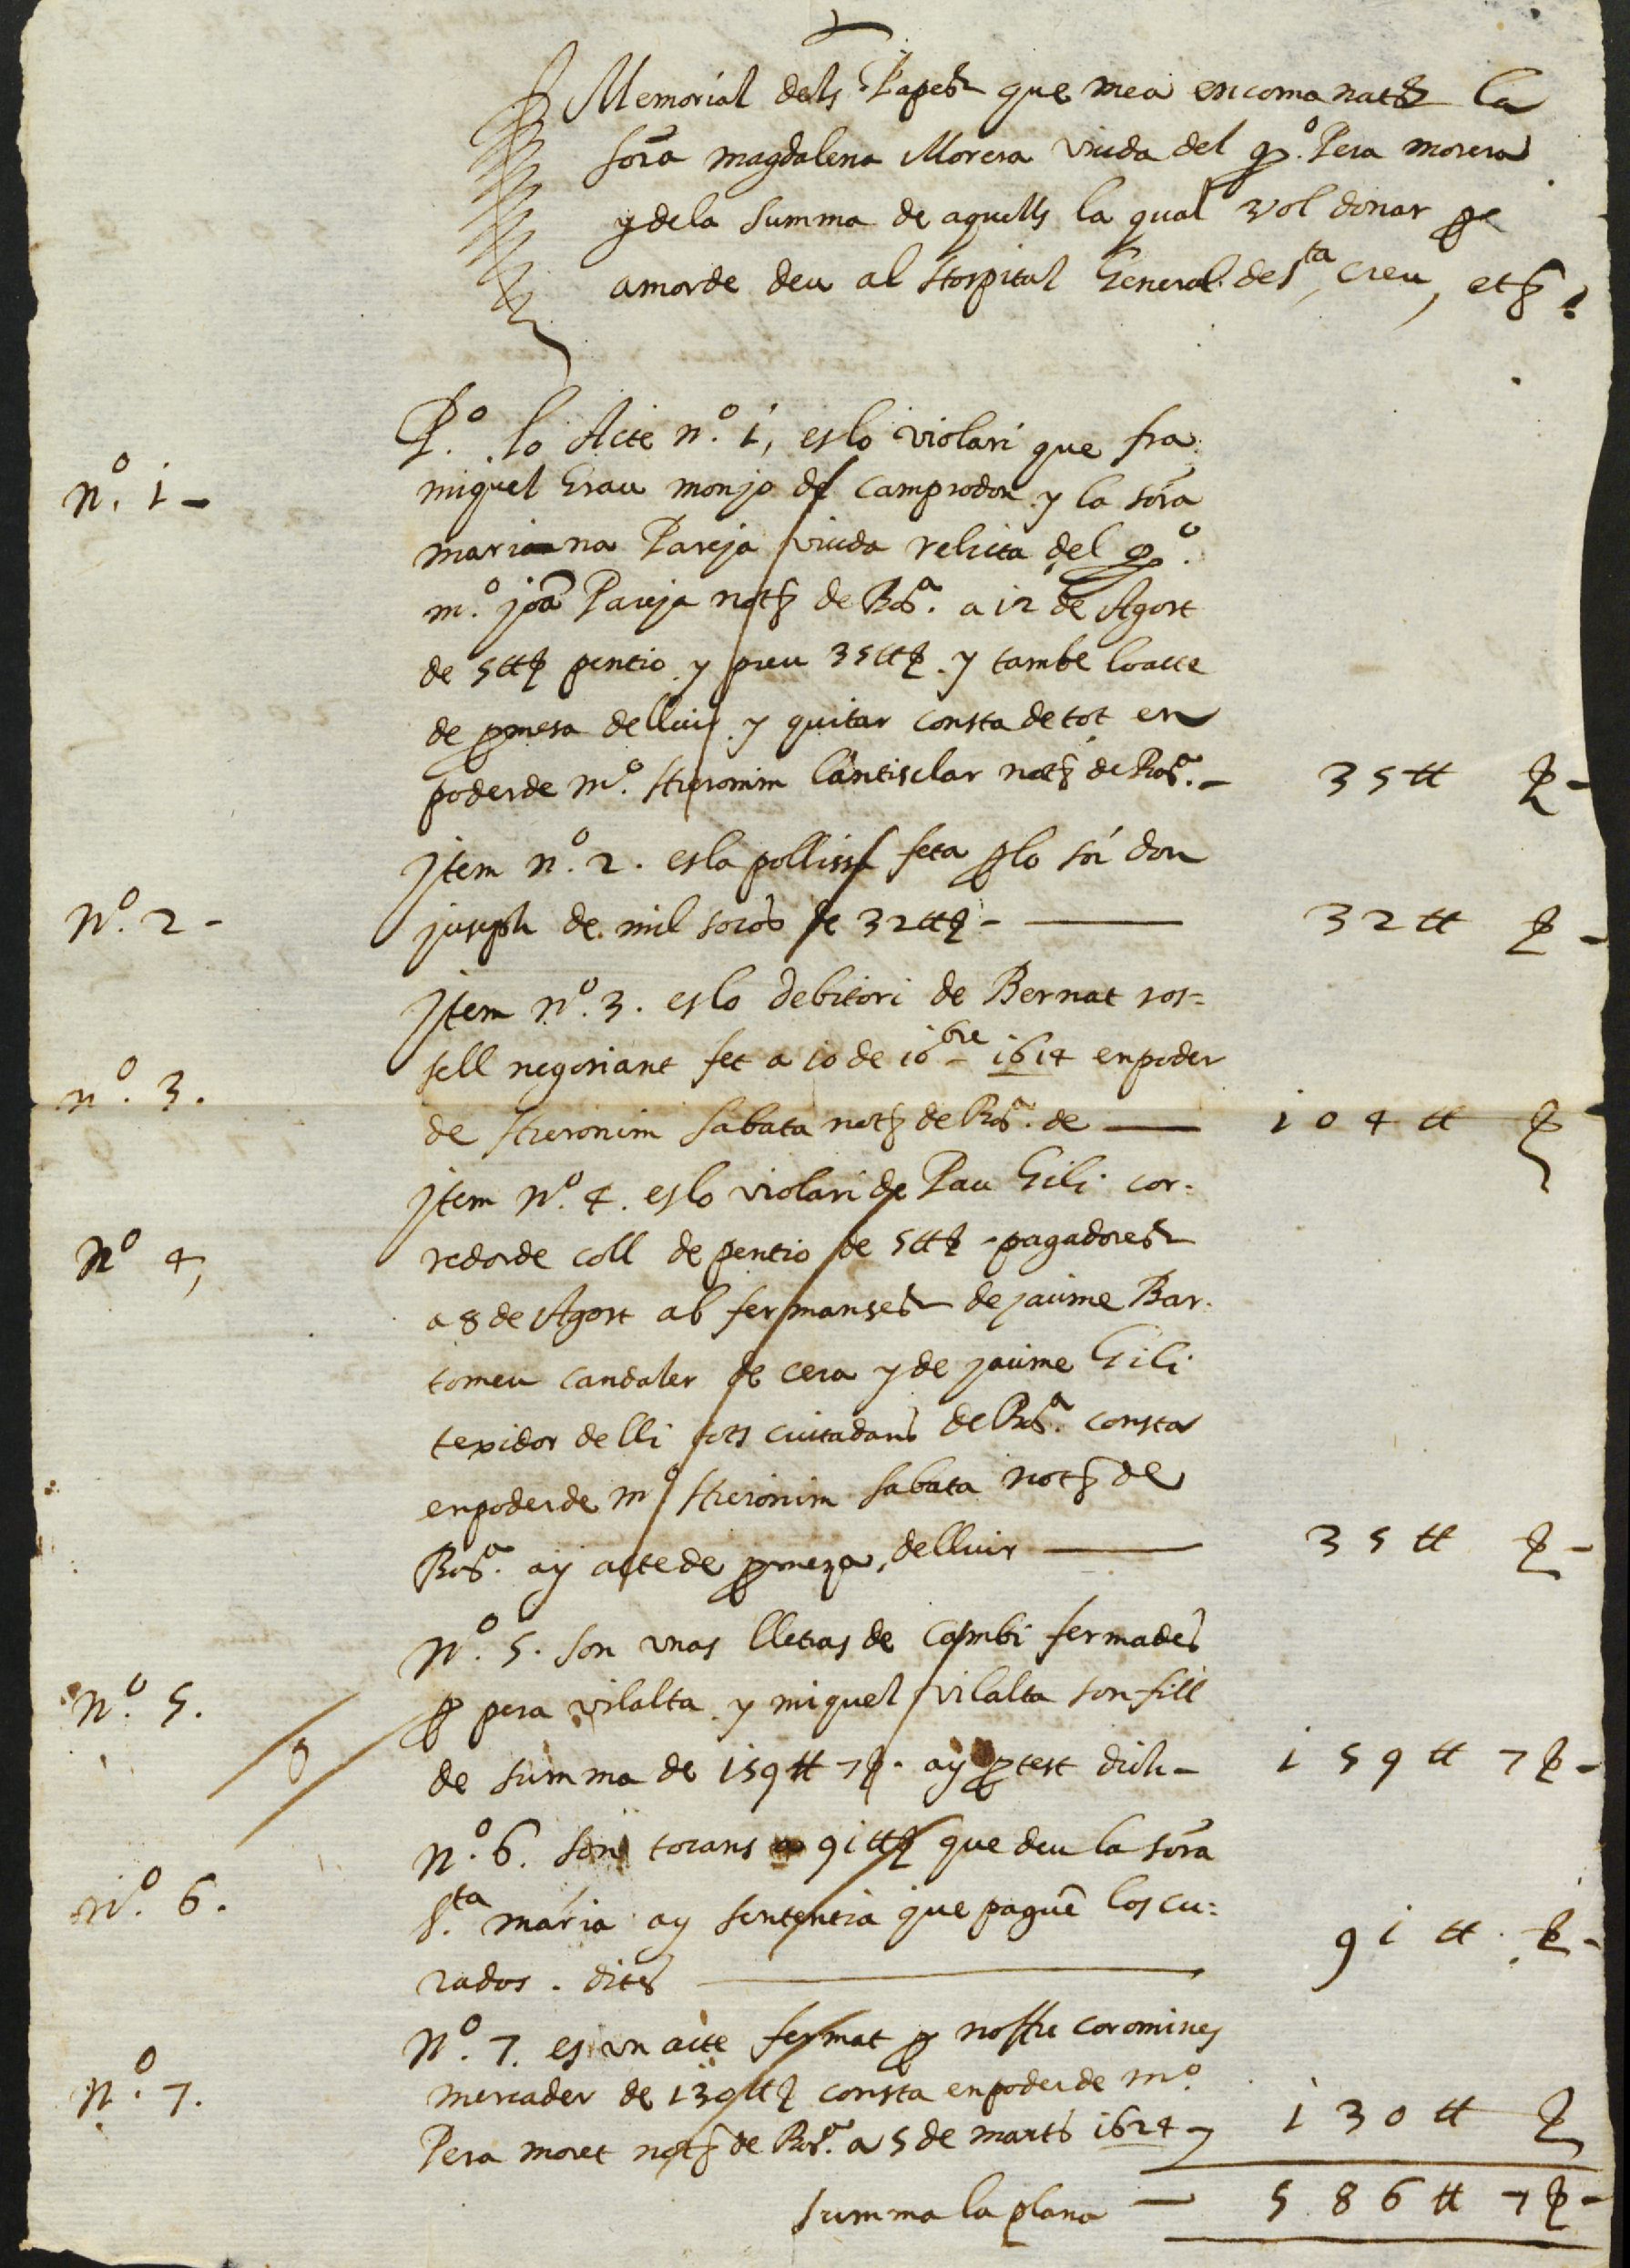 Memorial dels Papers que mea encomanats la
Sora magdalena Morera viuda del qº. Pera morera
y dela summa de aquells la qual vol donar per
amor de deu al Hospital General de Sta, Creu, etc.
Pº. lo Acte nº. 1, es lo violari que fra.
nº. 1 -
miquel Grau monjo de camprodon y la sora
mariana Pareja viuda relicta del qº.
mº. joã Pareja notᵉ de Barª. a 12 de Agost
de 5 ₶ ẞ pentio y preu 35 ₶ ẞ. y tambe lo acte
de ꝓmesa de lluir y quitar consta de tot en
poder de mº. Hieronim Santisclar notᵉ de Barª. - 35 ₶ ẞ -
Item nº. 2. es la pollissa feta ꝑ lo sor don
nº. 2 -
juseph de mil socos de 32 ₶ ẞ - 32 ₶ ẞ -
Item nº. 3. es lo debitori de Bernat ros=
sell negoriant fet a 10 de 10bre 1614 en poder
nº. 3.
de Hieronim Sabata notᵉ de Barª. de — 104 ₶ ẞ
Item nº. 4. es lo violari de Pau Gili cor=
nº 4,
redor de coll de pentio de 5 ₶ ẞ - pagadores
a 8 de Agost ab fermanses de jaume Bar.
tomeu candaler de cera y de jaume Gili
texidor de lli tots ciutadans de Barª. consta
en poder de mº Hieronim Sabata notᵉ de
Barª. ay acte de ꝓmeza, de lluir — 35 ₶ ẞ -
Nº. 5. son unas lletras de cambi fermades
nº. 5.
ꝑ pera vilalta y miquel vilalta son fill
de summa de 159 ₶ 7 ẞ. ay ꝓtest dich - 159 ₶ 7 ẞ -
Nº. 6. son 91 ₶ ẞ que deu la sora
nº. 6.
S.ta maria ay sententia que paguẽ los cu=
rados. dites — 91 ₶ ẞ -
Nº. 7. es un acte fermat ꝑ nostre coromines
nº. 7.
mercader de 130 ₶ ẞ consta en poder de mº.
Pera moret notᵉ de Barª. a 5 de marts 1624 - 130 ₶ ẞ
Summa la plana — 586 ₶ 7 ẞ -